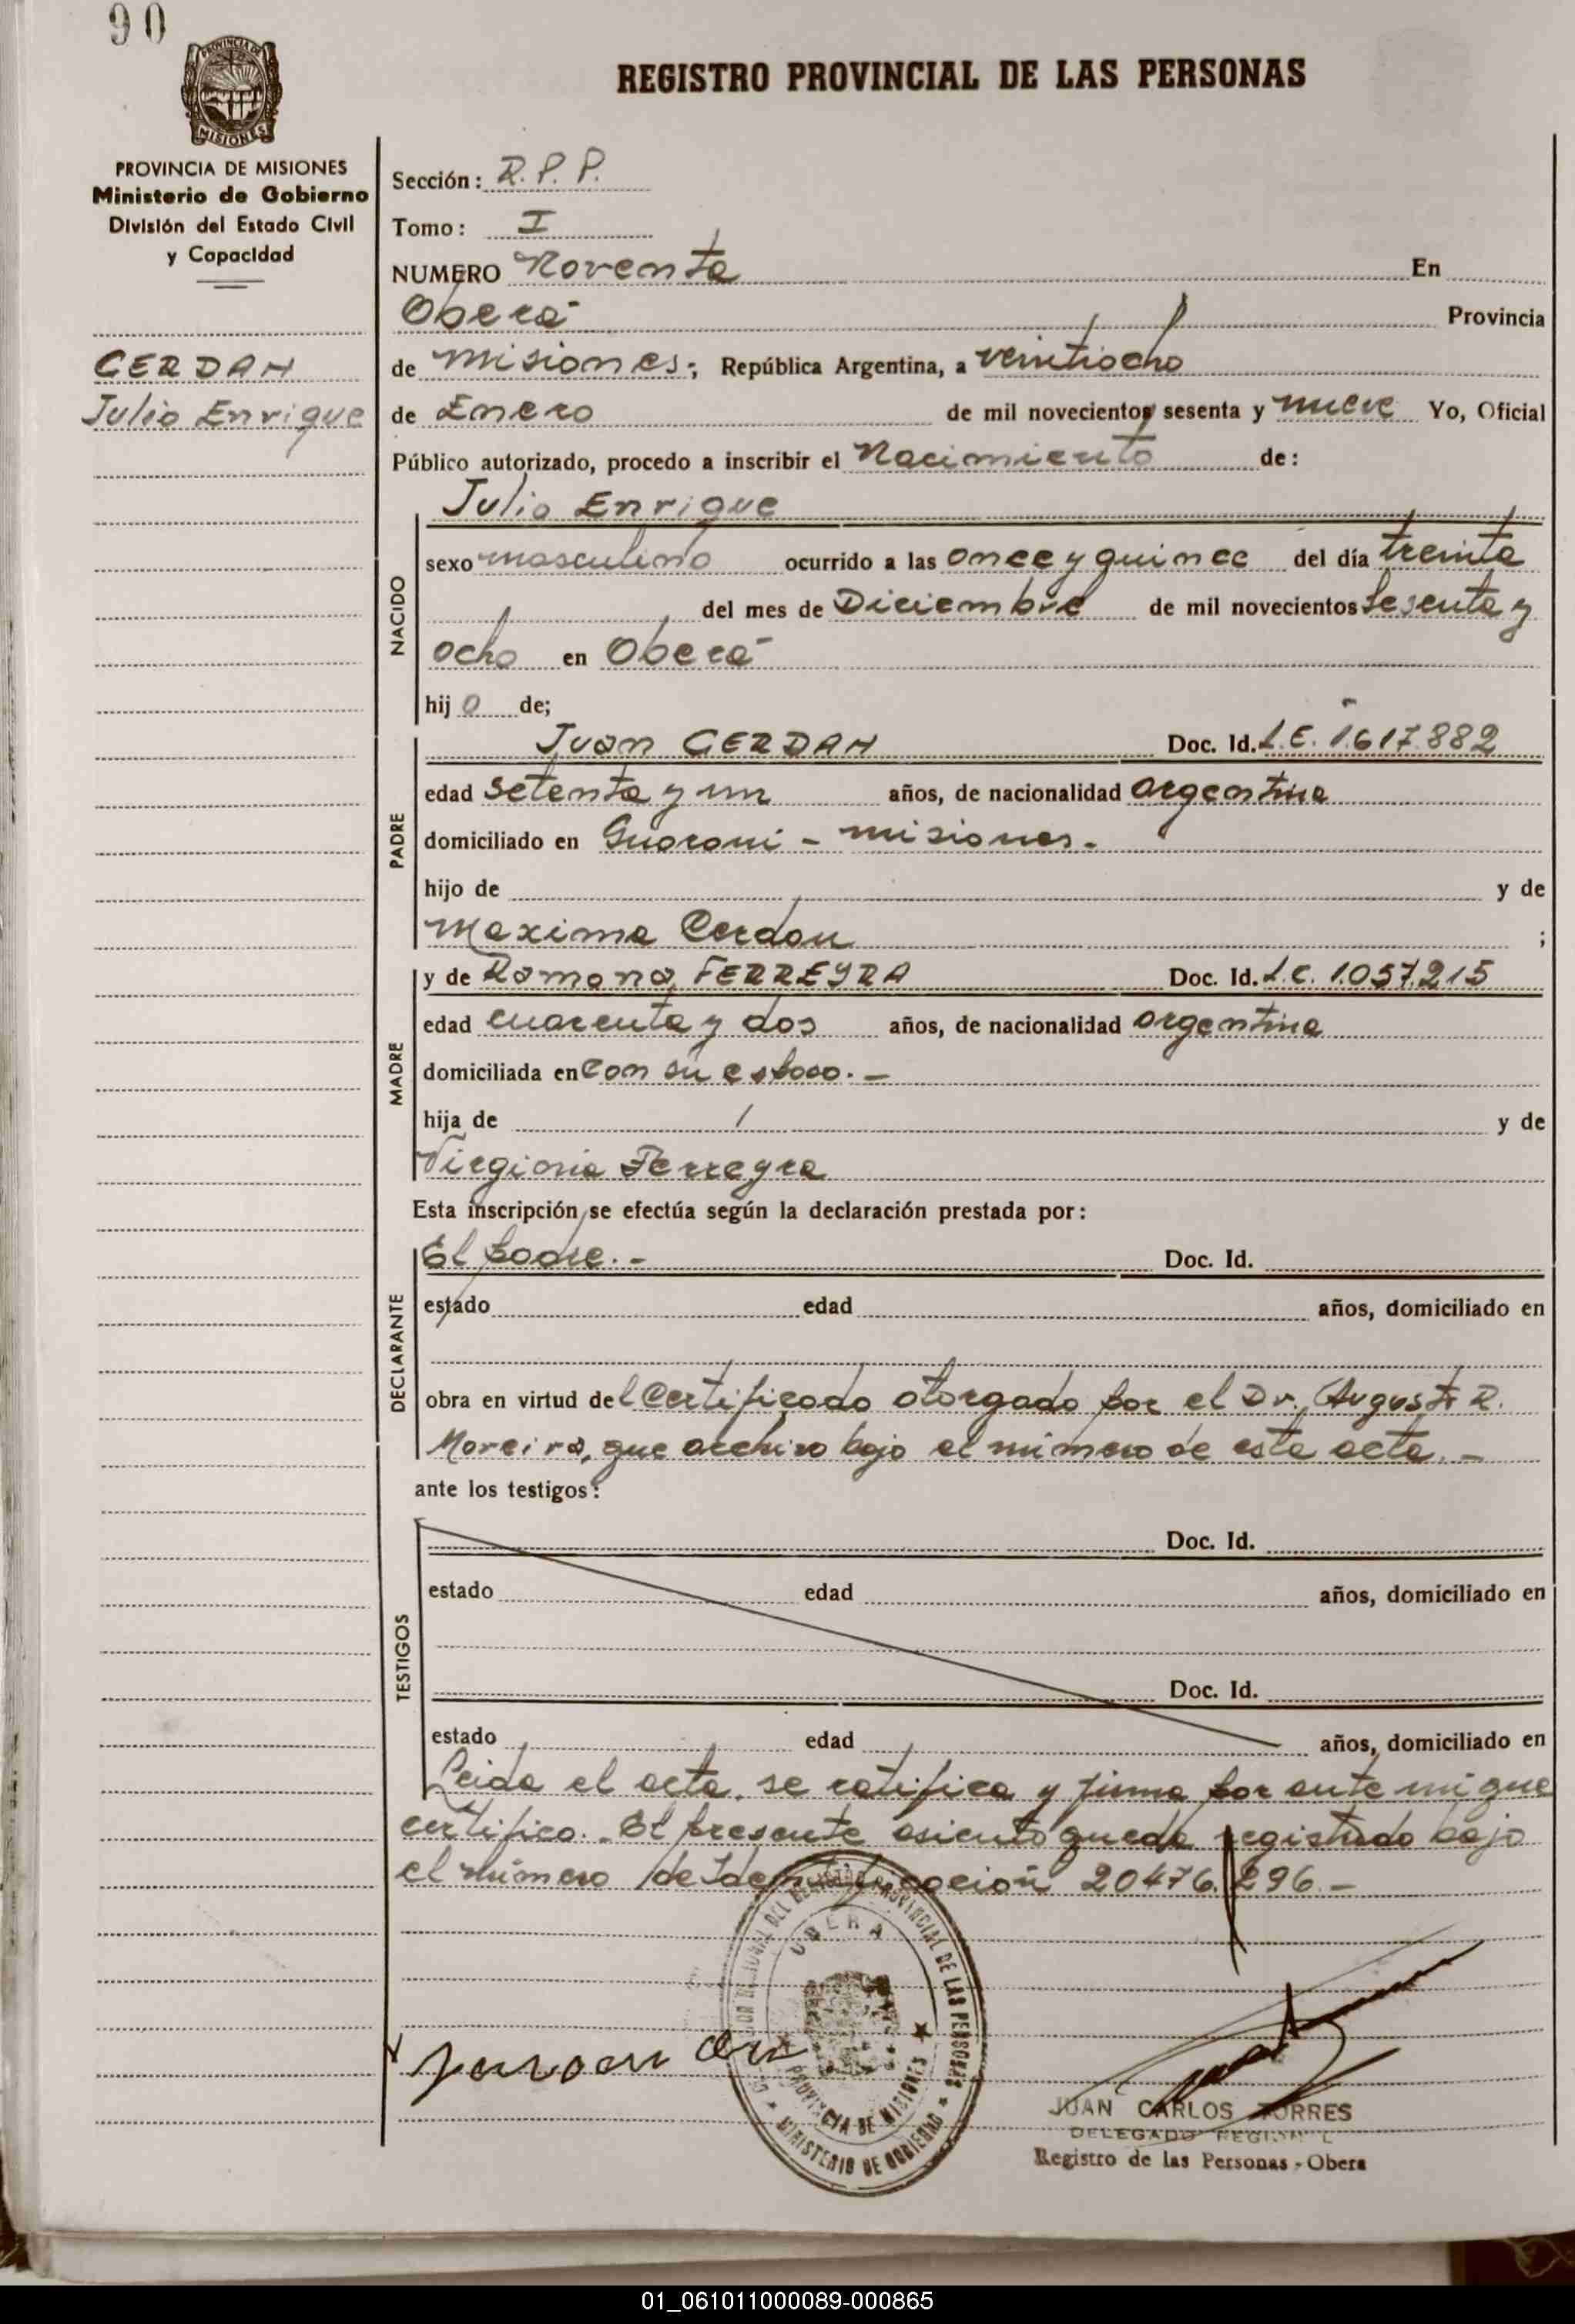 90
REGISTRO PROVINCIAL DE LAS PERSONAS
PROVINCIA DE MISIONES
PROVINCIA DE MISIONES
Ministerio de Gobierno
División del Estado Civil
y Capacidad
CERDAN
Julio Enrique
Sección: R. P. P.
Tomo: I
NUMERO Noventa En
Oberá Provincia
de Misiones; República Argentina, a veintiocho
de Enero de mil novecientos sesenta y nueve Yo, Oficial
Público autorizado, procedo a inscribir el Nacimiento de:
Julio Enrique
NACIDO
sexo masculino ocurrido a las once y quince del día treinta
del mes de Diciembre de mil novecientos sesenta y
ocho en Oberá
hij o de;
PADRE
Juan CERDAN Doc. Id. L.E. 1.617.882
edad setenta y un años, de nacionalidad argentina
domiciliado en Guarani - Misiones.
hijo de y de
Maxima Cerdan ;
MADRE
y de Ramona FERREYRA Doc. Id. L.C. 1.057.215
edad cuarenta y dos años, de nacionalidad argentina
domiciliada en con su esposo. -
hija de / y de
Virginia Ferreyra
Esta inscripción se efectúa según la declaración prestada por:
DECLARANTE
El padre. - Doc. Id.
estado edad años, domiciliado en
obra en virtud del Certificado otorgado por el Dr. Augusto R.
Moreira, que archivo bajo el número de esta acta. -
ante los testigos:
TESTIGOS
Doc. Id.
estado edad años, domiciliado en
Doc. Id.
estado edad años, domiciliado en
Leida el acta, se ratifica y firma por ante mi que
certifico. - El presente asiento queda registrado bajo
el número de Identificación 20.476.296. -
OBERA
PROVINCIAL DE LAS PERSONAS
PROVINCIA DE MISIONES
MINISTERIO DE GOBIERNO
JUAN CARLOS TORRES
DELEGADO REGIONAL
Registro de las Personas - Obera
01_061011000089-000865